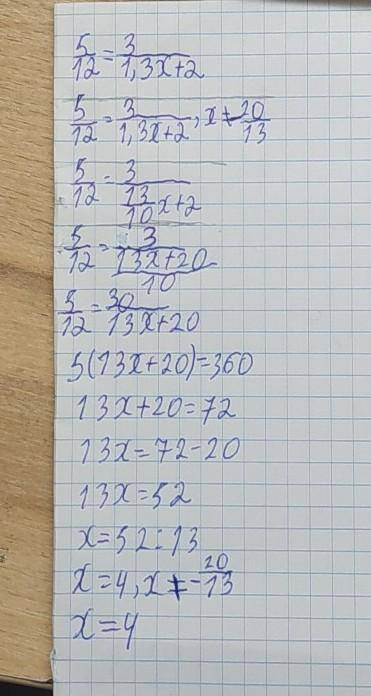 5/12 = 3/(1,3x+2)
5/12 = 3/(1,3x+2), x ≠ -20/13
5/12 = 3/(13/10 x+2)
5/12 = 3/((13x+20)/10)
5/12 = 30/(13x+20)
5(13x+20)=360
13x+20=72
13x=72-20
13x=52
x=52:13
x=4, x ≠ -20/13
x=4